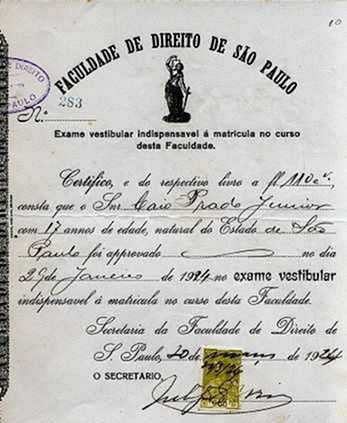 10
FACULDADE DE DIREITO DE SÃO PAULO
DIREITO
PAULO
N.º 283
Exame vestibular indispensavel á matricula no curso
desta Faculdade.
Certifico, e do respectivo livro a fl 110 e v.
consta que o Snr Caio Prado Junior
com 17 annos de edade, natural do Estado de São
Paulo foi approvado no dia
29 de Janeiro de 1924 no exame vestibular
indispensavel á matricula no curso desta Faculdade.
Secretaria da Faculdade de Direito de
S. Paulo, 20 de março de 1924
O SECRETARIO,